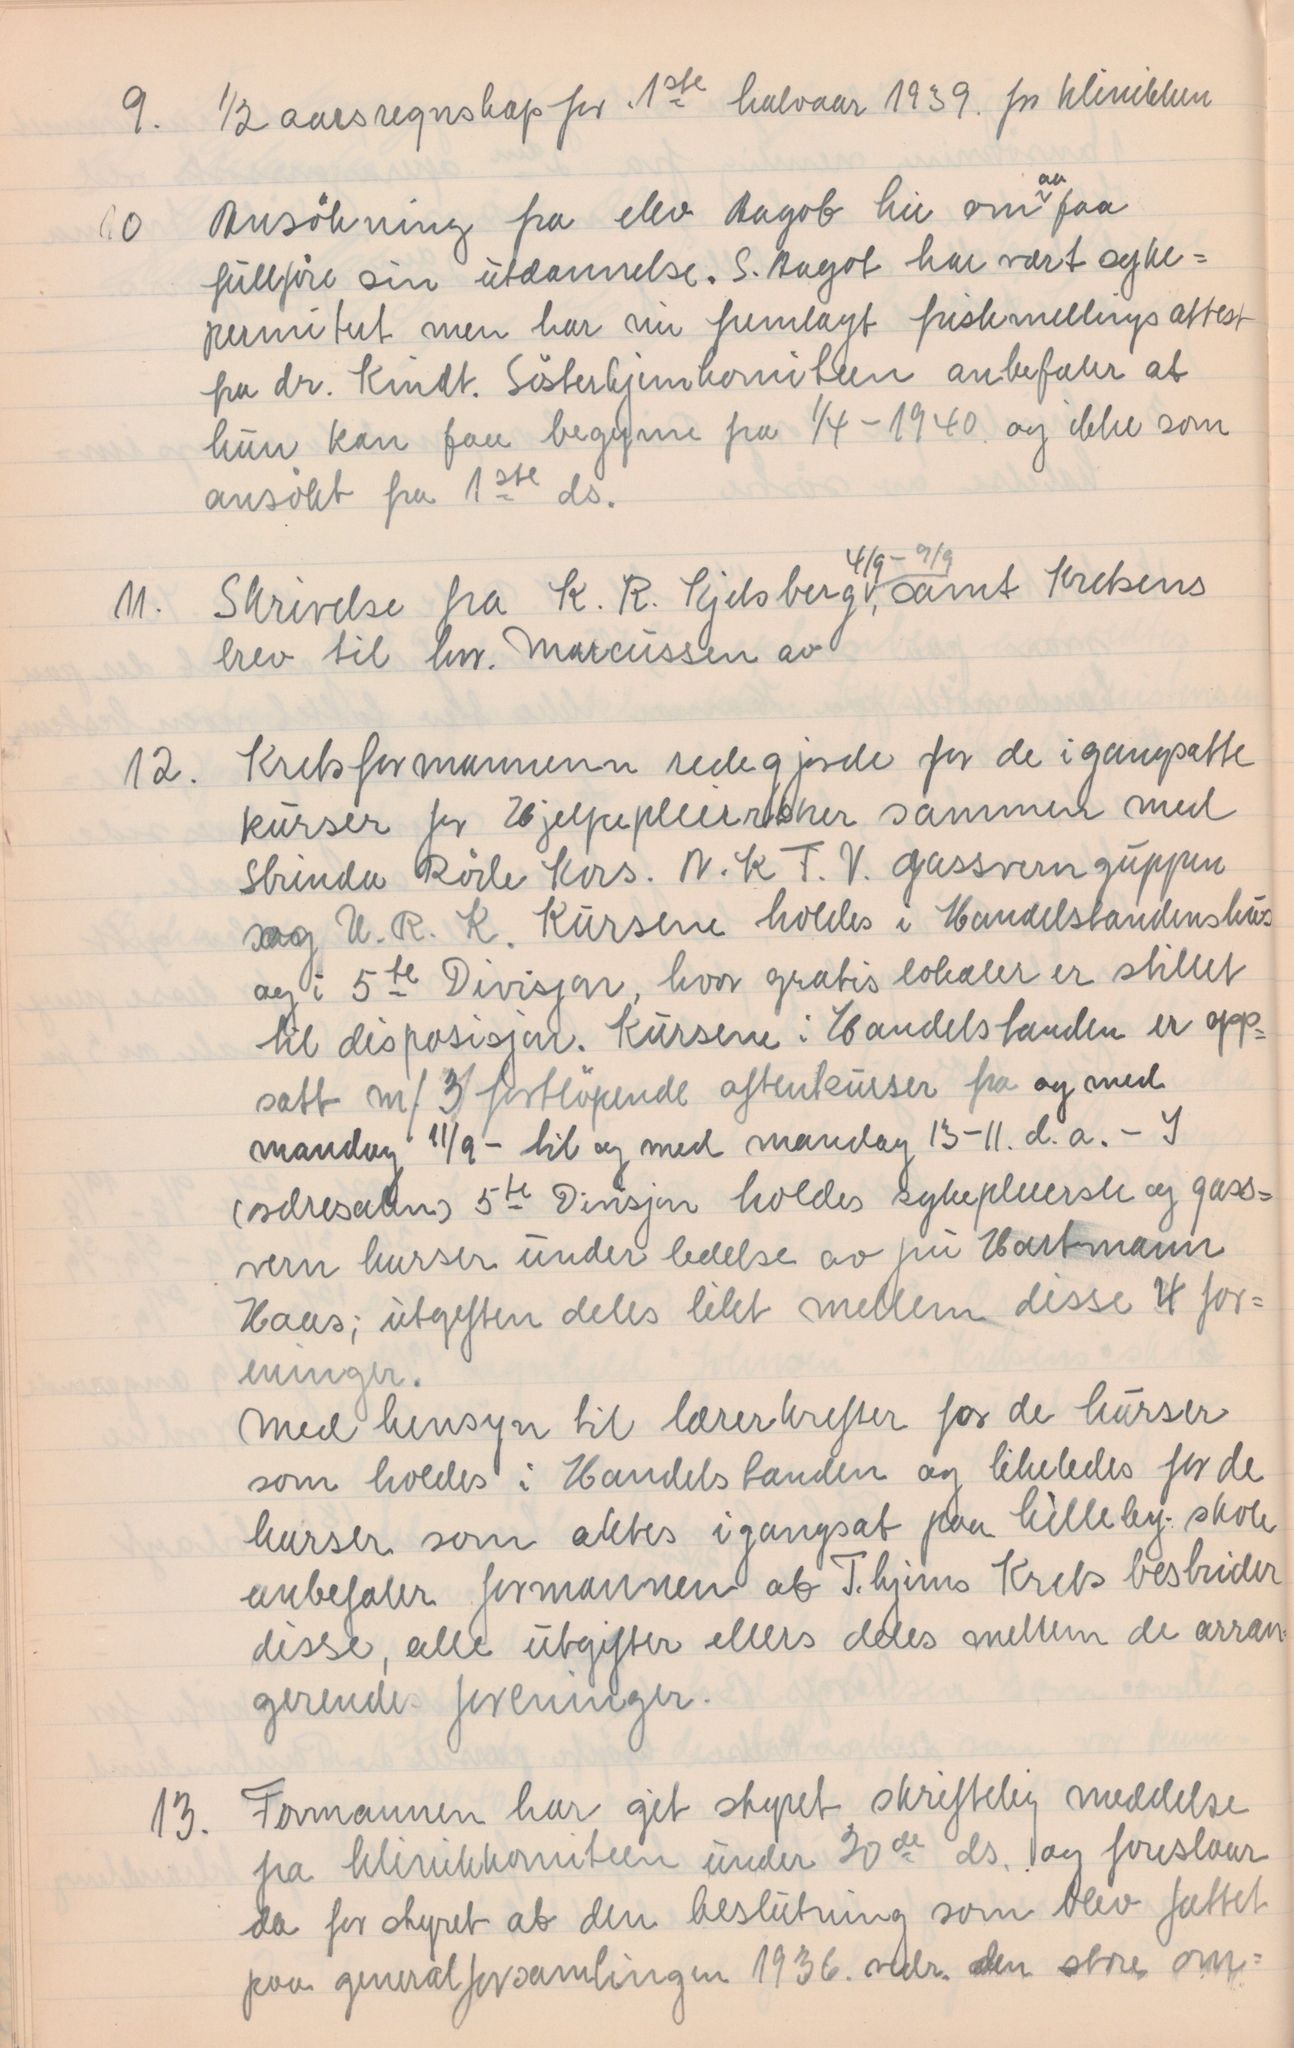 9. 1/2 aarsregnskap for 1ste halvaar 1939. fr klinikken
10 Ansökning fra elev Aagot Lie om aa faa
fullföre sin utdannelse. S. Aagot har vært syke=
permitert men har nu fremlagt friskmellings attest
fra dr. Kindt. Sösterhjemkomiteen anbefaler at
hun kan faa begynne fra 1/4 - 1940 og ikke som
ansökt fra 1ste ds.
11. Skrivelse fra K. R. Kjelsberg 4/9 - 9/9, samt Kretsens
brev til hr. Marcussen av
12. Kretsformannenn redegjorde for de igangsatte
kurser for Hjelpepleiersker sammen med
Strinda Röde Kors. N. K. T. V. gassvernguppen
og U. R. K. Kursene holdes i Handelstandenshus
og i 5te Divisjon, hvor gratis lokaler er stillet
til disposisjon. Kursene i Handelstanden er opp=
satt m/ 3 fortlöpende aftenkurser fra og med
mandag 11/9 - til og med mandag 13-11. d. a. - I
5te Divisjon holdes sykepleierske og gass=
vern kurser under ledelse av fru Hartmann
Haas; utgiften deles likt mellem disse 4 for=
eninger.
Med hensyn til lærerkrefter for de kurser
som holdes i Handelstanden og likeledes for de
kurser som aktes igangsat paa Lilleby skole
anbefaler formannen at T.hjems Krets bestrider
disse, alle utgifter ellers deles mellem de arran=
gerende foreninger.
13. Formannen har git styret skriftelig meddelse
fra klinikkomiteen under 30de ds. og foreslaar
da for styret at den beslutning som blev fattet
paa generalforsamlingen 1936. vedr. den store om=